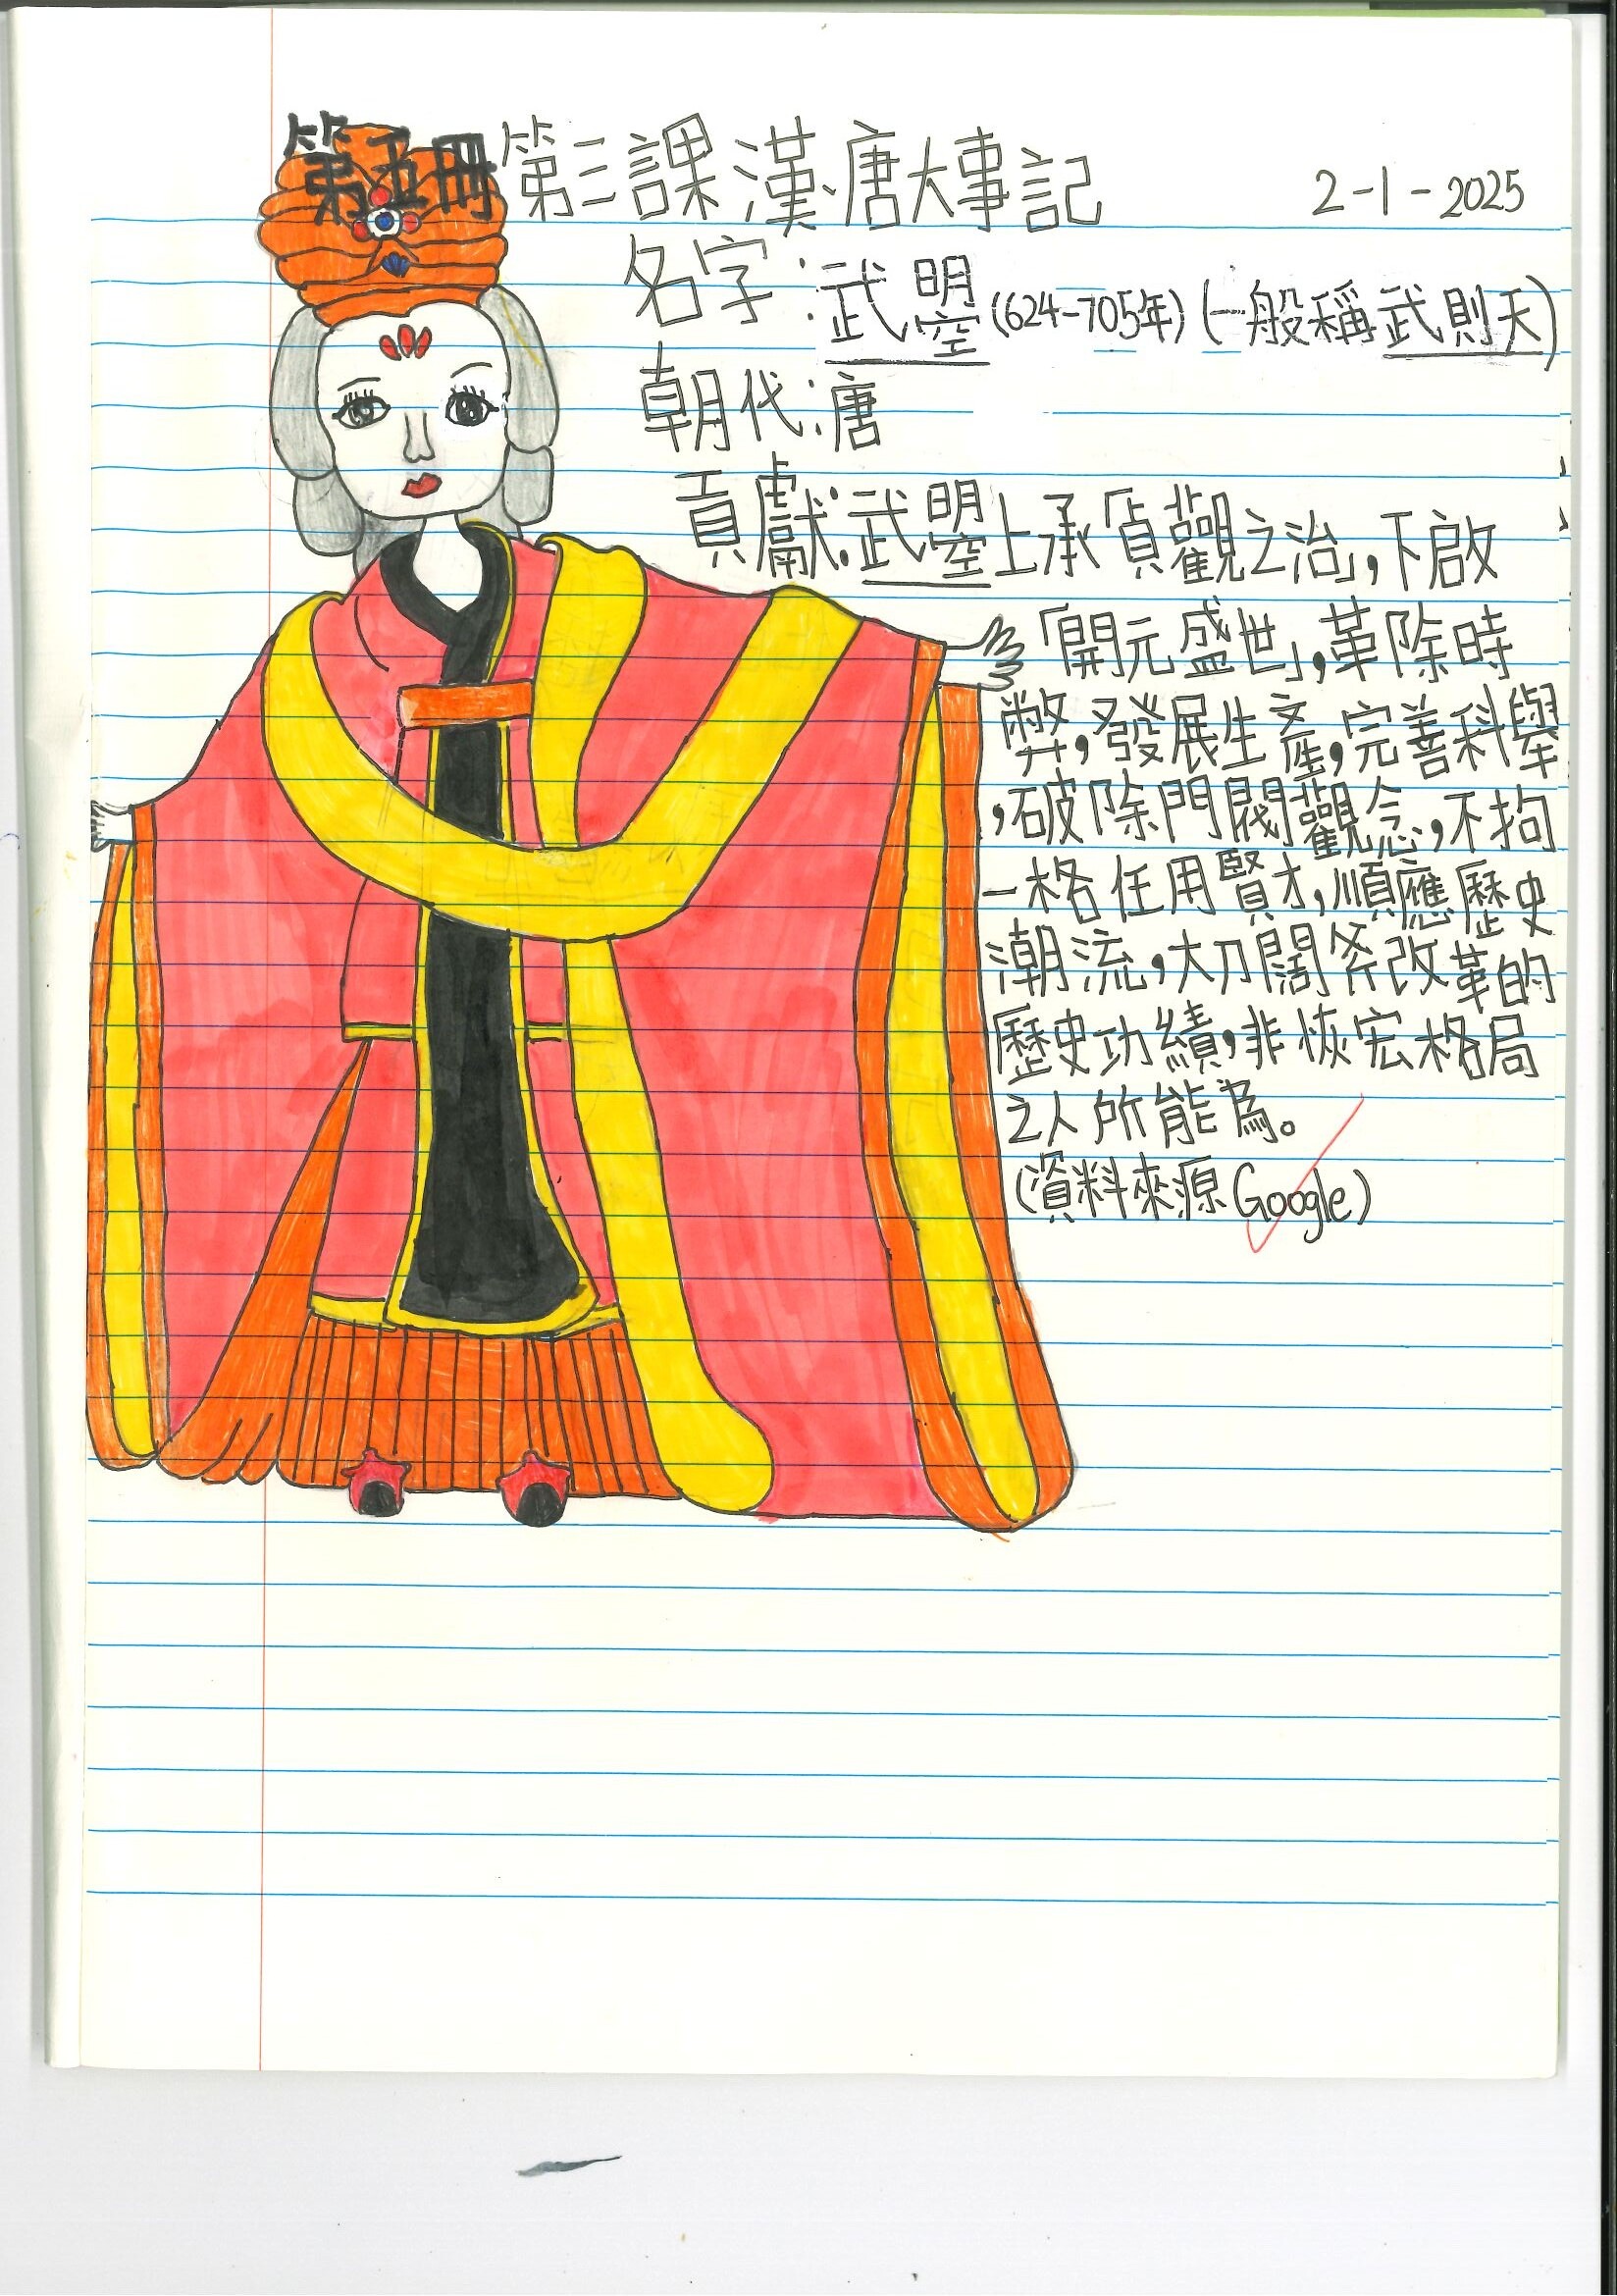 第五冊第三課漢唐大事記
2-1-2025
名字:武曌(624-705年)(一般稱武則天)
朝代:唐
貢獻:武曌上承「貞觀之治」,下啟
「開元盛世」,革除時
弊,發展生產,完善科舉
,破除門閥觀念,不拘
一格任用賢才,順應歷史
潮流,大刀闊斧改革的
歷史功績,非恢宏格局
之人所能為。
(資料來源Google)